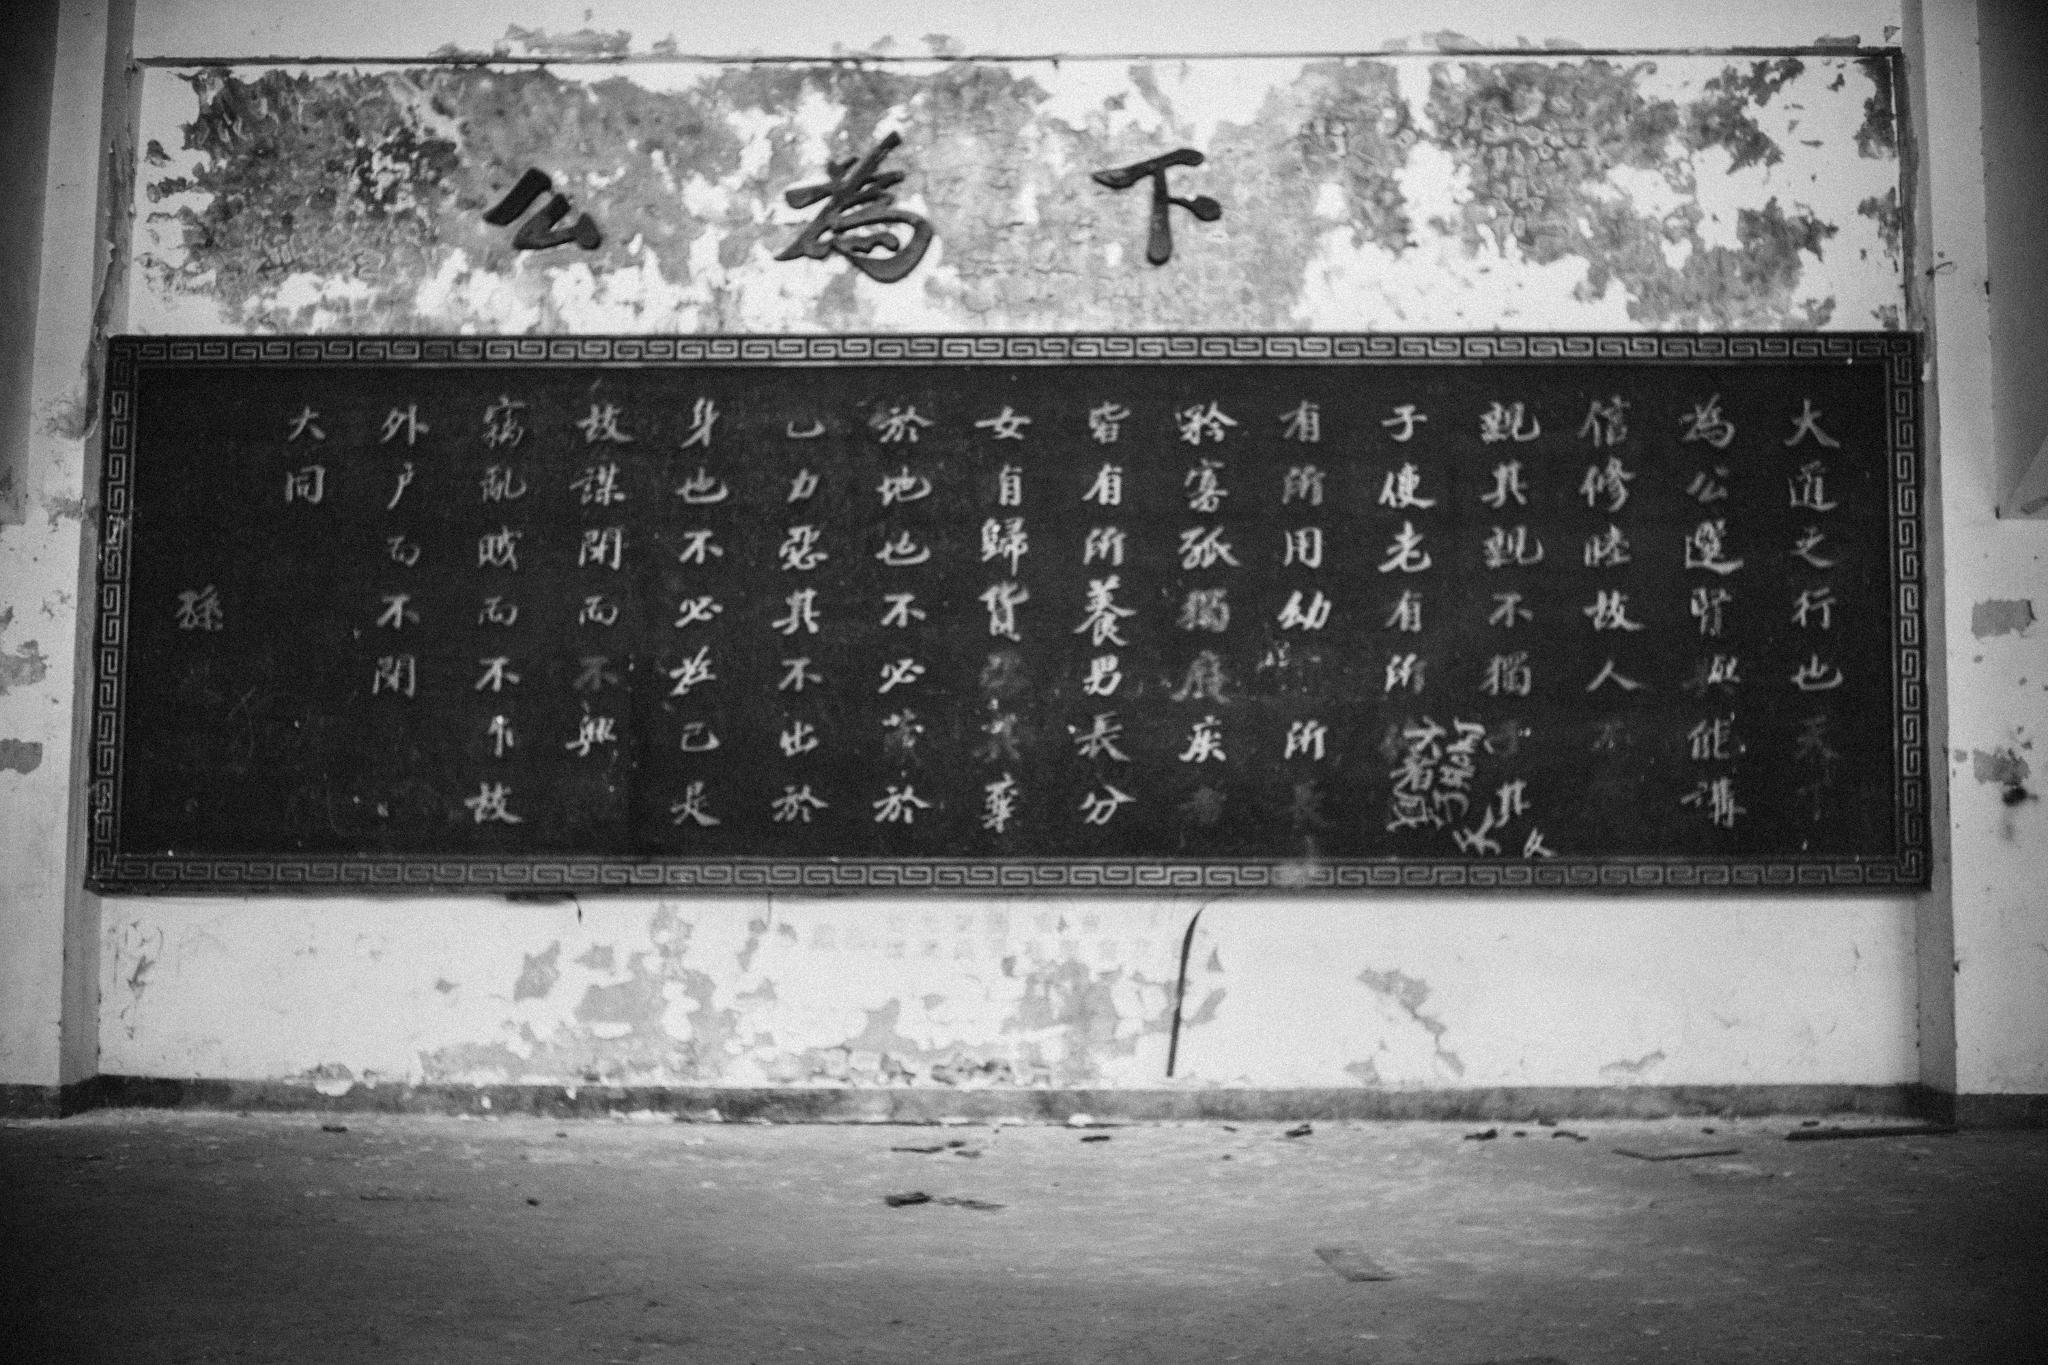 下為公
大道之行也天下
為公選賢與能講
信修睦故人不
親其親不獨子其
子使老有所
有所用幼所長
矜寡孤獨廢疾者
皆有所養男長分
女有歸貨惡其棄
於地也不必藏於
己力惡其不出於
身也不必為己是
故謀閉而不興
竊亂賊而不作故
外戶而不閉
大同
孫